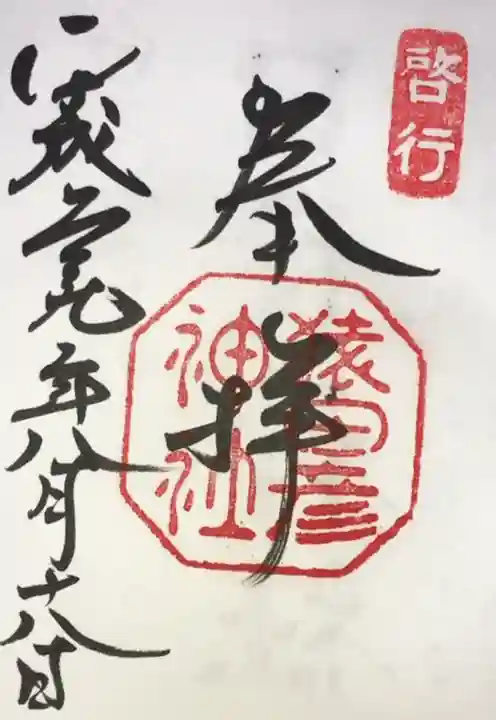 啓行
奉拝
猿田彦
神社
平成 年八月十八日